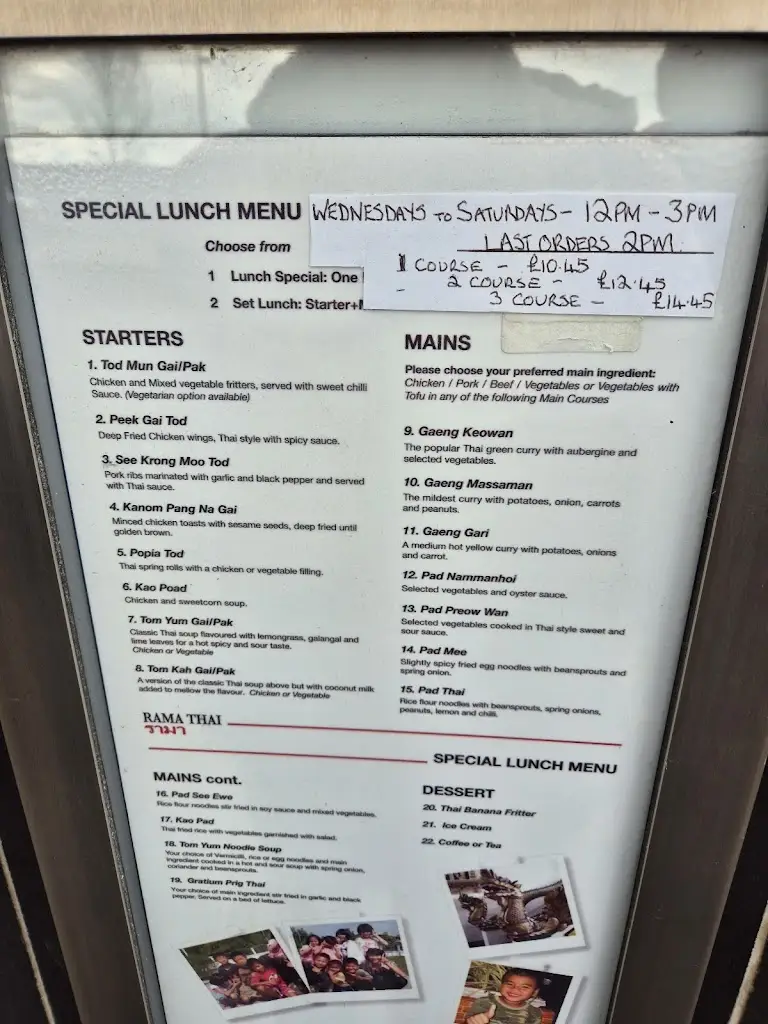 SPECIAL LUNCH MENU
WEDNESDAYS TO SATURDAYS - 12PM - 3PM
LAST ORDERS 2PM.
Choose from
1 COURSE - £10.45
1 Lunch Special: One
- 2 COURSE - £12.45
2 Set Lunch: Starter+
3 COURSE - £14.45
STARTERS
1. Tod Mun Gai/Pak
Chicken and Mixed vegetable fritters, served with sweet chilli
Sauce. (Vegetarian option available)
2. Peek Gai Tod
Deep Fried Chicken wings, Thai style with spicy sauce.
3. See Krong Moo Tod
Pork ribs marinated with garlic and black pepper and served
with Thai sauce.
4. Kanom Pang Na Gai
Minced chicken toasts with sesame seeds, deep fried until
golden brown.
5. Popia Tod
Thai spring rolls with a chicken or vegetable filling.
6. Kao Poad
Chicken and sweetcorn soup.
7. Tom Yum Gai/Pak
Classic Thai soup flavoured with lemongrass, galangal and
lime leaves for a hot spicy and sour taste.
Chicken or Vegetable
8. Tom Kah Gai/Pak
A version of the classic Thai soup above but with coconut milk
added to mellow the flavour. Chicken or Vegetable
MAINS
Please choose your preferred main ingredient:
Chicken / Pork / Beef / Vegetables or Vegetables with
Tofu in any of the following Main Courses
9. Gaeng Keowan
The popular Thai green curry with aubergine and
selected vegetables.
10. Gaeng Massaman
The mildest curry with potatoes, onion, carrots
and peanuts.
11. Gaeng Gari
A medium hot yellow curry with potatoes, onions
and carrot.
12. Pad Nammanhoi
Selected vegetables and oyster sauce.
13. Pad Preow Wan
Selected vegetables cooked in Thai style sweet and
sour sauce.
14. Pad Mee
Slightly spicy fried egg noodles with beansprouts and
spring onion.
15. Pad Thai
Rice flour noodles with beansprouts, spring onions,
peanuts, lemon and chilli.
RAMA THAI
รามา
SPECIAL LUNCH MENU
MAINS cont.
16. Pad See Ewe
Rice flour noodles stir fried in soy sauce and mixed vegetables.
17. Kao Pad
Thai fried rice with vegetables garnished with salad.
18. Tom Yum Noodle Soup
Your choice of Vermicelli, rice or egg noodles and main
ingredient cooked in a hot and sour soup with spring onion,
coriander and beansprouts.
19. Gratium Prig Thai
Your choice of main ingredient stir fried in garlic and black
pepper. Served on a bed of lettuce.
DESSERT
20. Thai Banana Fritter
21. Ice Cream
22. Coffee or Tea